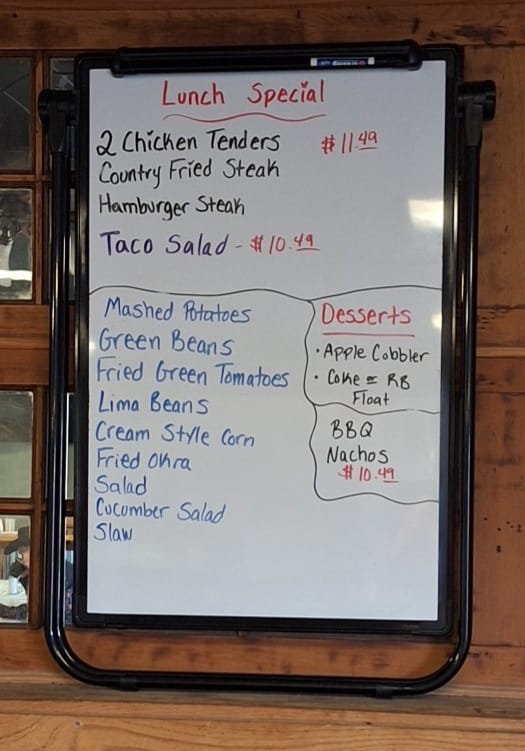 Lunch Special
2 Chicken Tenders $11.49
Country Fried Steak
Hamburger Steak
Taco Salad - $10.49
Mashed Potatoes
Green Beans
Fried Green Tomatoes
Lima Beans
Cream Style Corn
Fried Okra
Salad
Cucumber Salad
Slaw
Desserts
• Apple Cobbler
• Coke or RB
Float
BBQ
Nachos
$10.49